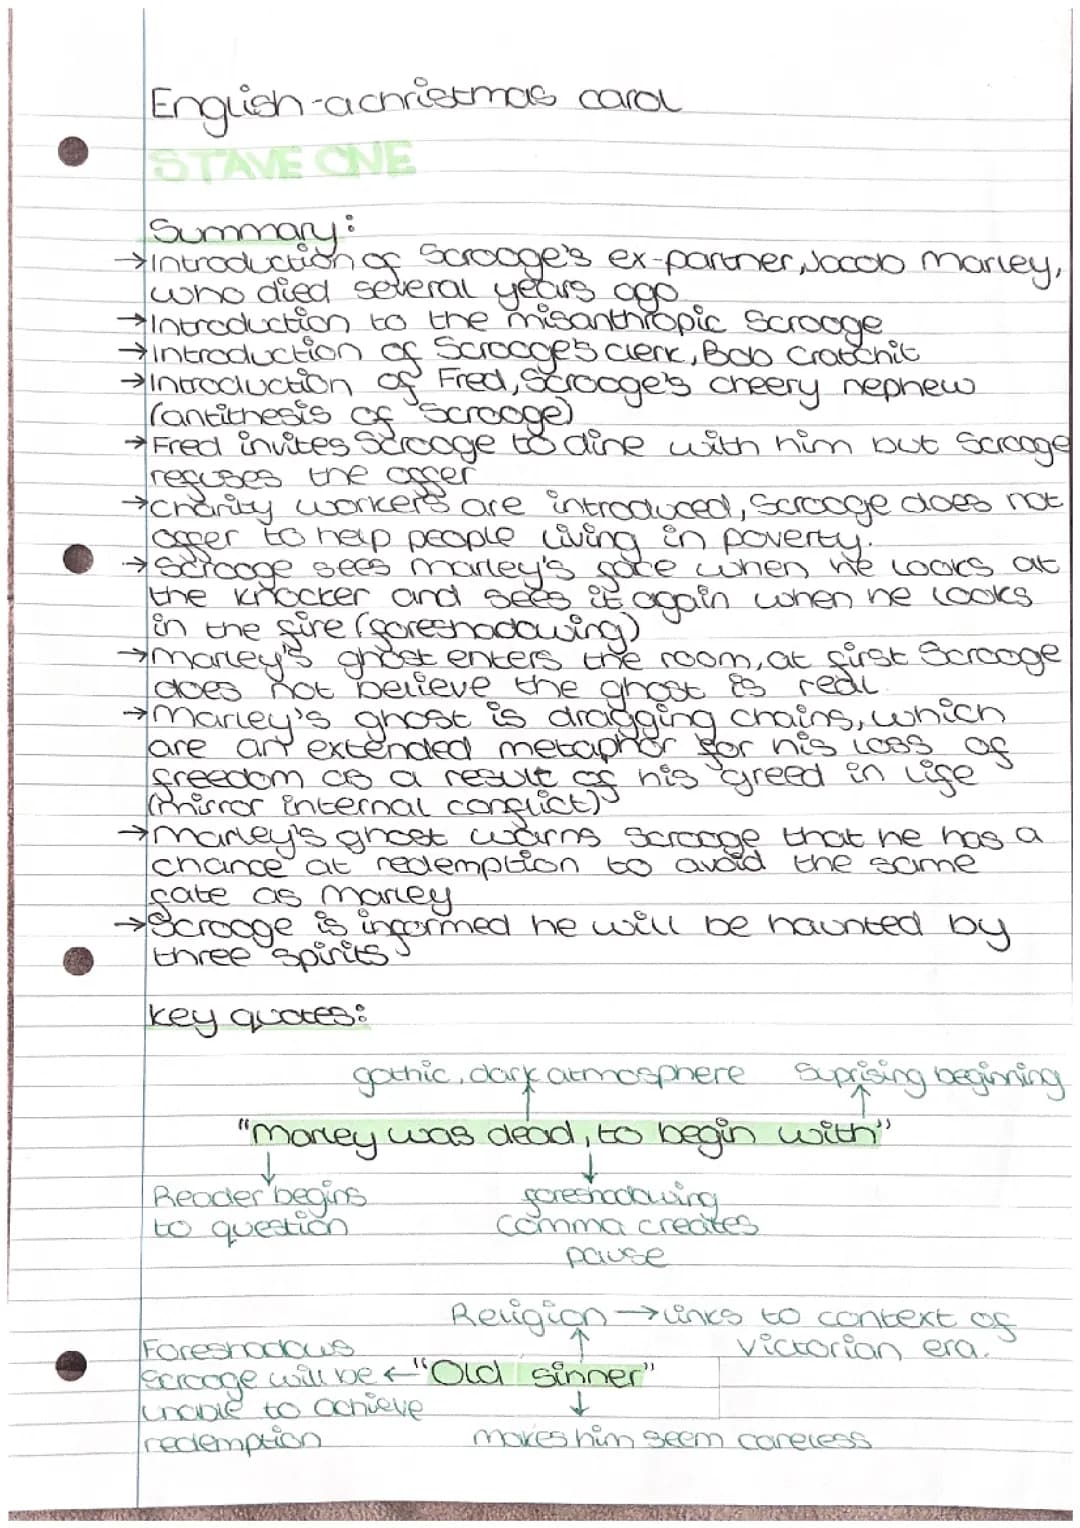 English - a christmas carol
STAVE ONE
Summary:
→Introduction of Scrooge's ex-partner, Jacob Marley,
who died several years ago
→Introduction to the misanthropic Scrooge
→Introduction of Scrooge's clerk, Bob Cratchit
→Introduction of Fred, Scrooge's cheery nephew
(antithesis of Scrooge)
→Fred invites Scrooge to dine with him but Scrooge
refuses the offer
→charity workers are introduced, Scrooge does not
offer to help people living in poverty.
→Scrooge sees marley's face when he looks at
the knocker and sees it again when he looks
in the fire (foreshadowing)
→Marley's ghost enters the room, at first Scrooge
does not believe the ghost is real.
→Marley's ghost is dragging chains, which
are an extended metaphor for his loss of
freedom as a result of his greed in life
(mirror internal conflict)
→Marley's ghost warns Scrooge that he has a
chance at redemption to avoid the same
fate as Marley
→Scrooge is informed he will be haunted by
three spirits
key quotes:
gothic, dark atmosphere Suprising beginning
"Marley was dead, to begin with"
Reader begins foreshadowing
to question comma creates
pause
Religion → links to context of
Foreshadows victorian era.
Scrooge will be ← "Old sinner"
unable to achieve
redemption makes him seem careless